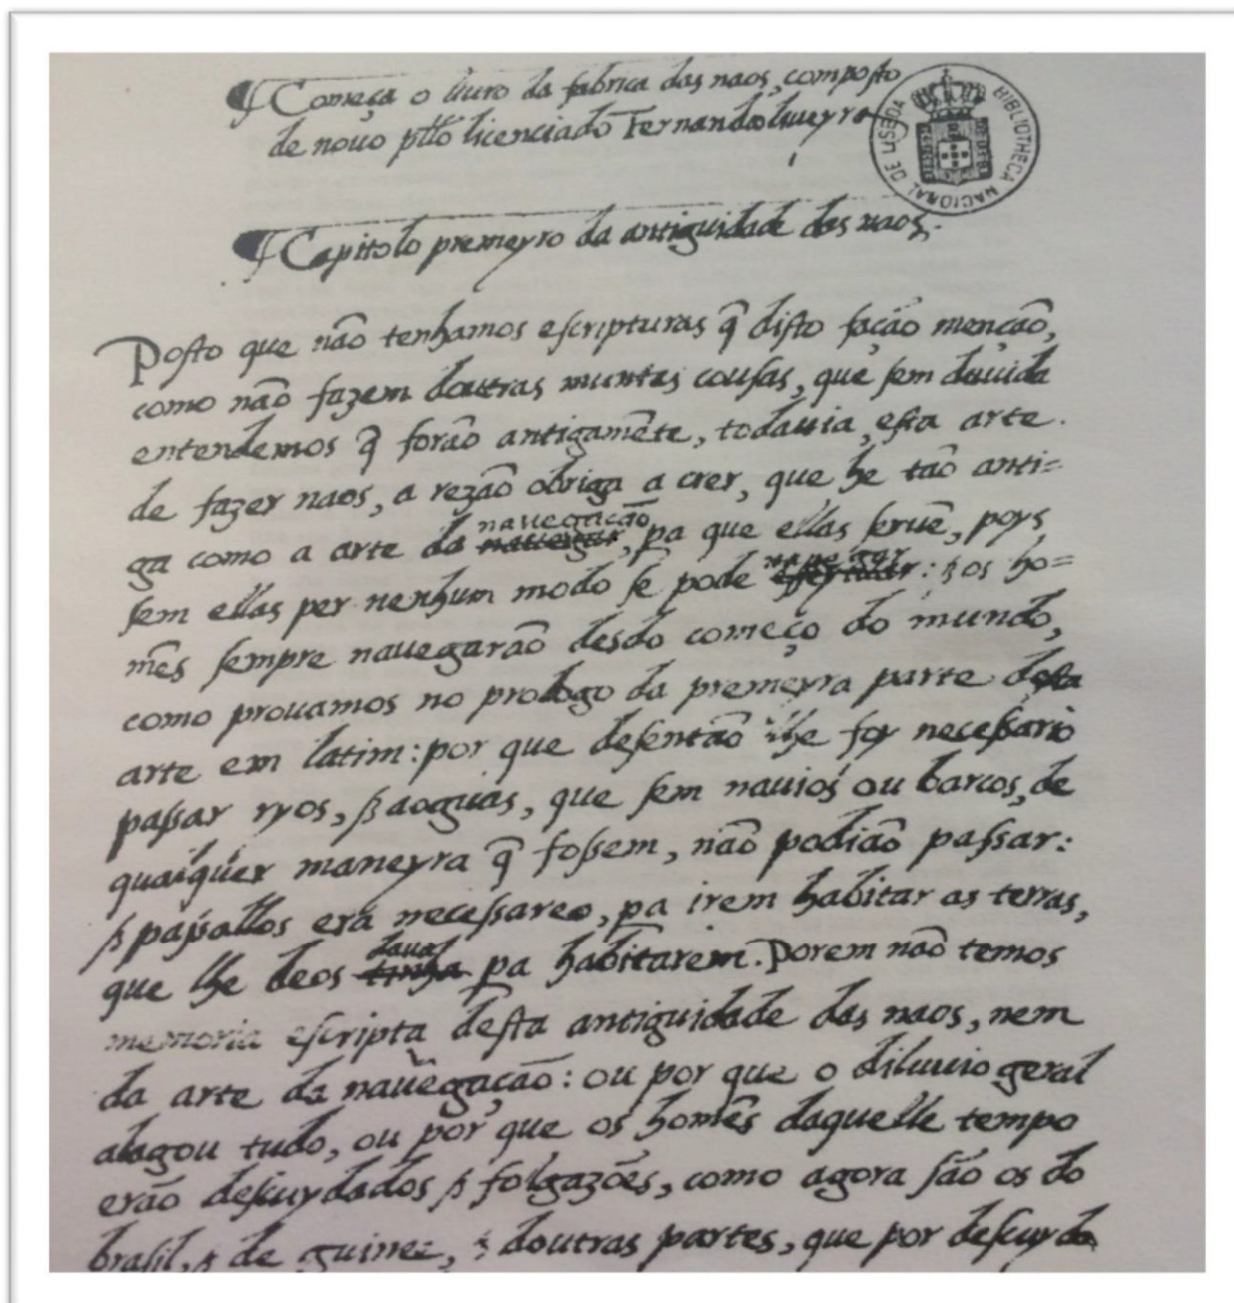 ¶ Começa o liuro da fabrica das naos, composto
de nouo pello licenciado Fernandoliueyra
BIBLIOTHECA NACIONAL DE LISBOA
¶ Capitolo premeyro da antiguidade das naos.
Posto que não tenhamos escripturas q̃ disto fação menção,
como não fazem doutras muntas cousas, que sem duuida
entendemos q̃ forão antigamẽte, todauia, esta arte
de fazer naos, a rezão obriga a crer, que he tão anti=
navegação
ga como a arte da nauegar, pa que ellas seruẽ, poys
navegar
sem ellas per nenhum modo se pode : & os ho=
mẽs sempre nauegarão desdo começo do mundo,
como prouamos no prologo da premeyra parte desta
arte em latim: por que desentão lhe foy necessario
passar ryos, & aoguas, que sem nauios ou barcos, de
qualquer maneyra q̃ fossem, não podião passar:
& passallos era necessareo, pa irem habitar as terras,
daua
que lhe deos tinha pa habitarem. Porem não temos
memoria escripta desta antiguidade das naos, nem
da arte da nauegação: ou por que o diluuio geral
alagou tudo, ou por que os homẽs daquelle tempo
erão descuydados & folgazões, como agora são os do
brasil, & de guinee, & doutras partes, que por descuydo